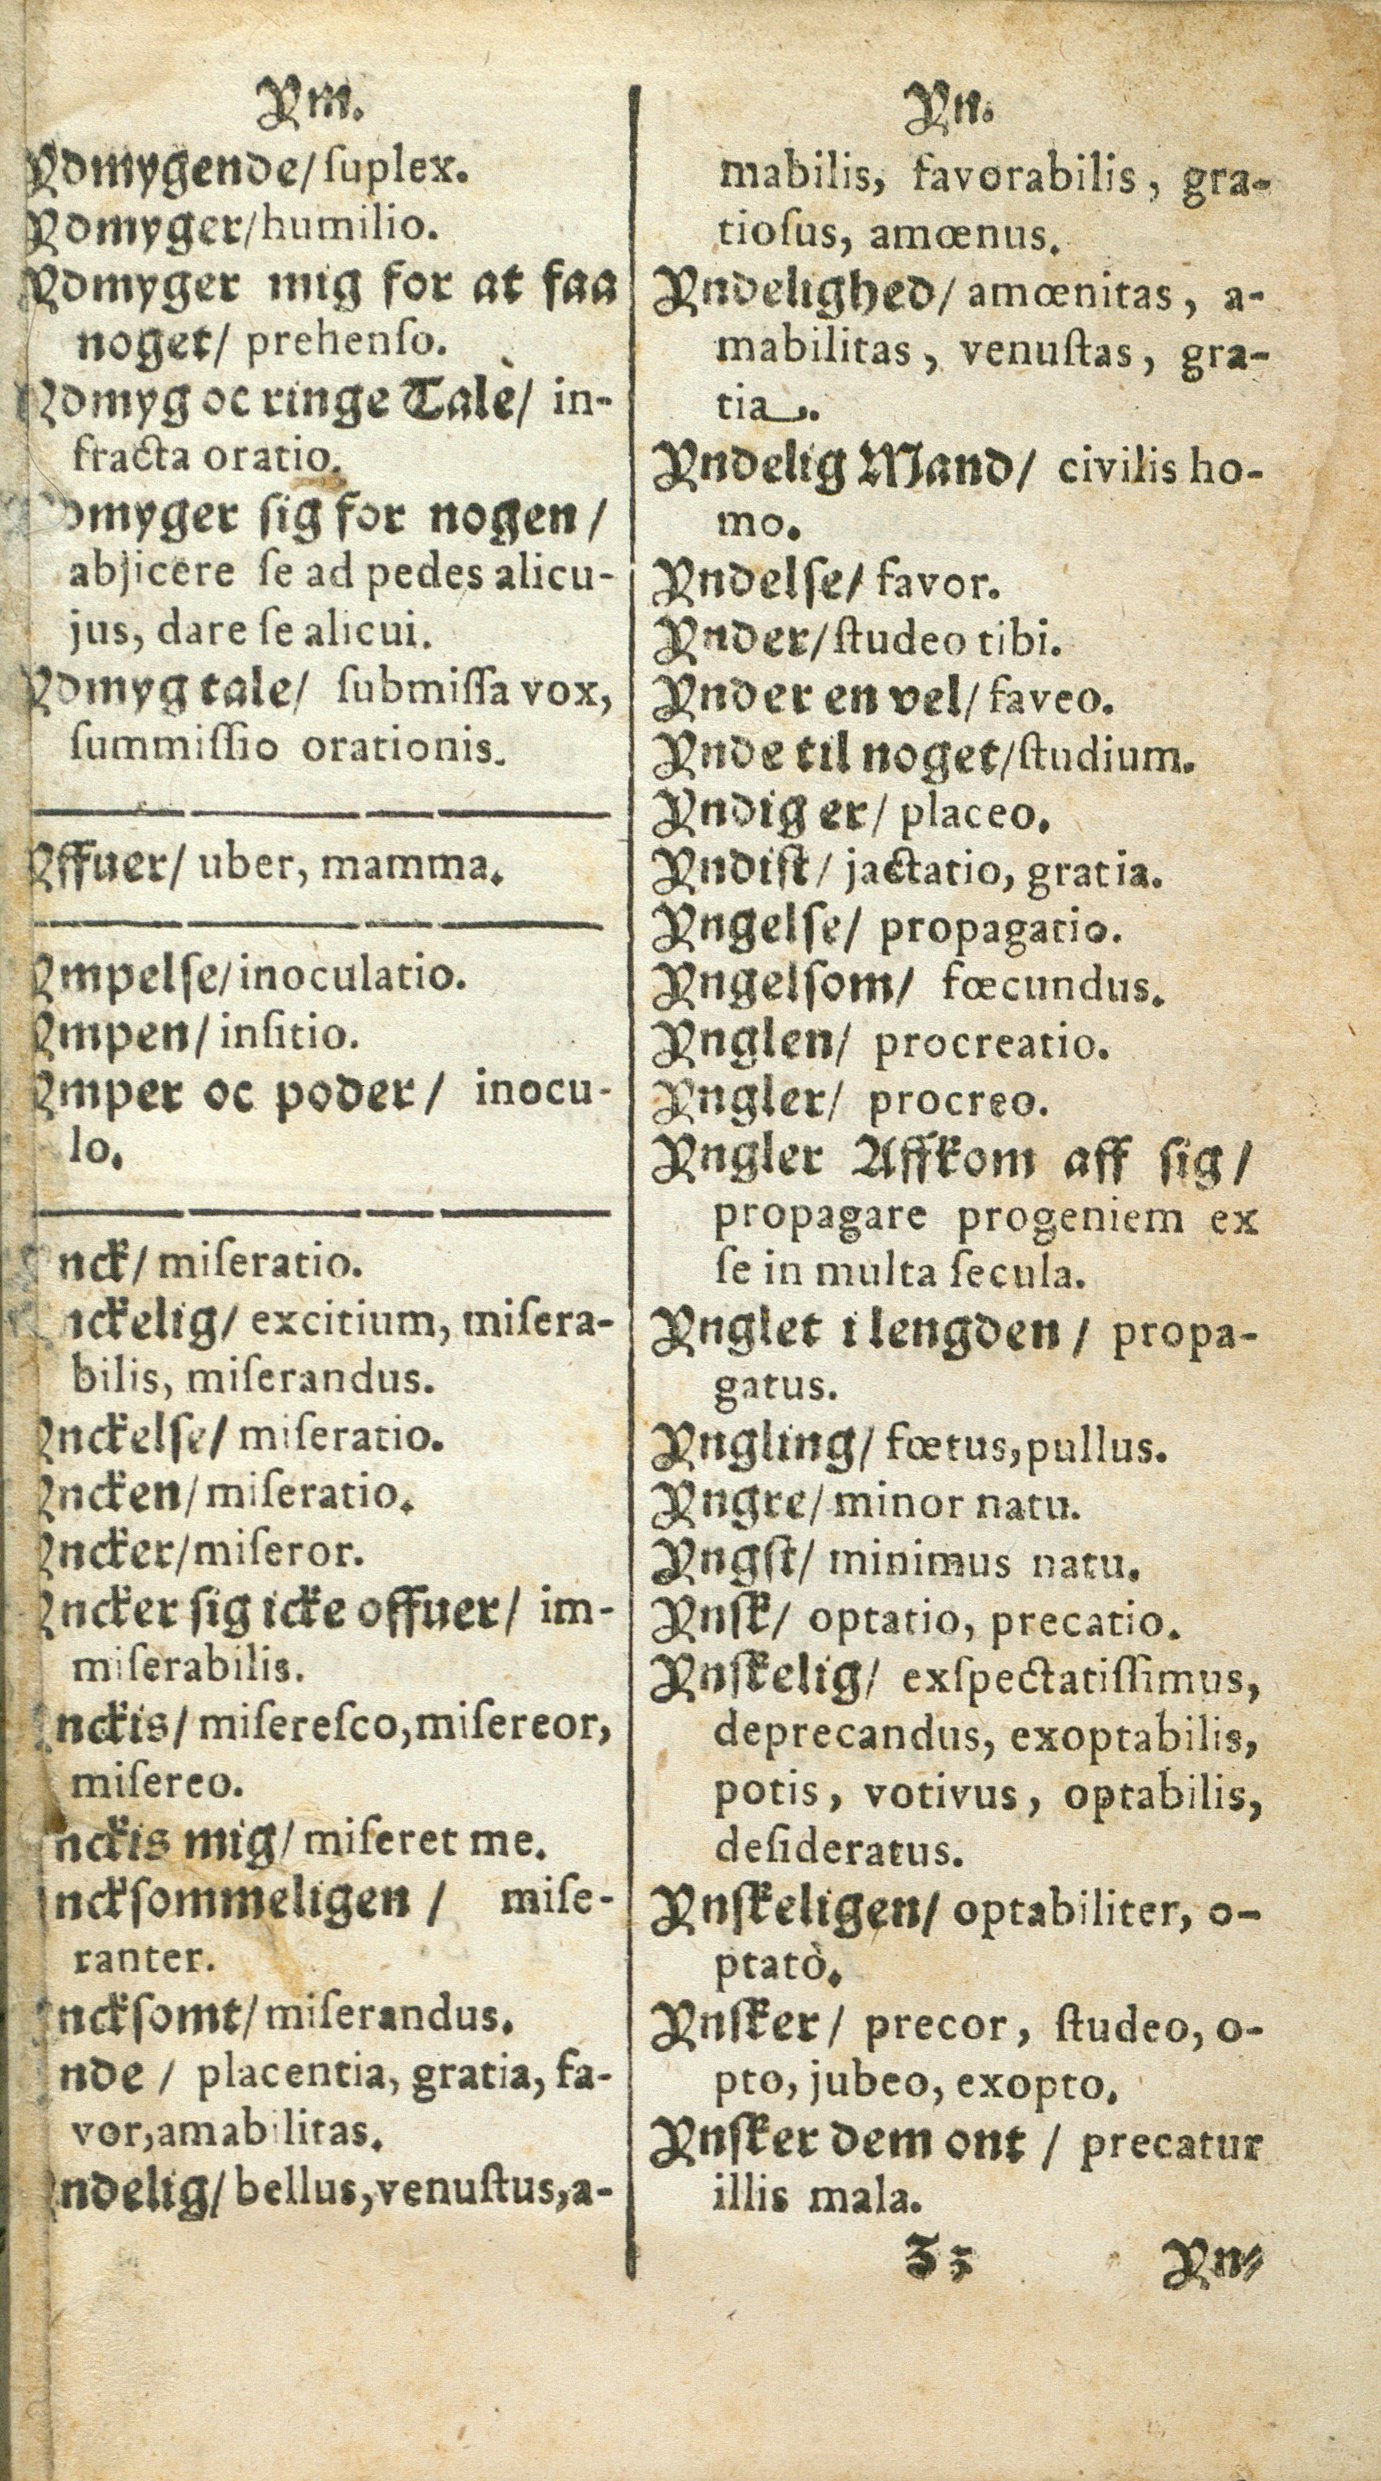 Ym.
Ydmygende/ ſuplex.
Ydmyger/ humilio.
Ydmyger mig for at faa
noget/ prehenſo.
Ydmyg oc ringe Talè/ in-
fracta oratio.
Ydmyger ſig for nogen/
abjicere ſe ad pedes alicu-
jus, dare ſe alicui.
Ydmyg tale/ ſubmiſſa vox,
ſummiſſio orationis.
Yffuer/ uber, mamma.
Ympelſe/ inoculatio.
Ympen/ inſitio.
Ymper oc poder/ inocu-
lo.
Ynck/ miſeratio.
Ynckelig/ excitium, miſera-
bilis, miſerandus.
Ynckelſe/ miſeratio.
Yncken/ miſeratio.
Yncker/ miſeror.
Yncker ſig icke offuer/ im-
miſerabilis.
Ynckis/ miſereſco, miſereor,
miſereo.
Ynckis mig/ miſeret me.
Ynckſommeligen/ miſe-
ranter.
Ynckſomt/ miſerandus.
Ynde/ placentia, gratia, fa-
vor, amabilitas.
Yndelig/ bellus, venuſtus, a-
Yn.
mabilis, favorabilis, gra-
tioſus, amœnus.
Yndelighed/ amœnitas, a-
mabilitas, venuſtas, gra-
tia.
Yndelig Mand/ civilis ho-
mo.
Yndelſe/ favor.
Ynder/ ſtudeo tibi.
Ynder en vel/ faveo.
Ynde til noget/ ſtudium.
Yndig er/ placeo.
Yndiſt/ jactatio, gratia.
Yngelſe/ propagatio.
Yngelſom/ fœcundus.
Ynglen/ procreatio.
Yngler/ procreo.
Yngler Affkom aff ſig/
propagare progeniem ex
ſe in multa ſecula.
Ynglet i lengden/ propa-
gatus.
Yngling/ fœtus, pullus.
Yngre/ minor natu.
Yngſt/ minimus natu.
Ynſk/ optatio, precatio.
Ynſkelig/ exſpectatiſſimus,
deprecandus, exoptabilis,
potis, votivus, optabilis,
deſideratus.
Ynſkeligen/ optabiliter, o-
ptatò.
Ynſker/ precor, ſtudeo, o-
pto, jubeo, exopto.
Ynſker dem ont/ precatur
illis mala.
Zz Yn-